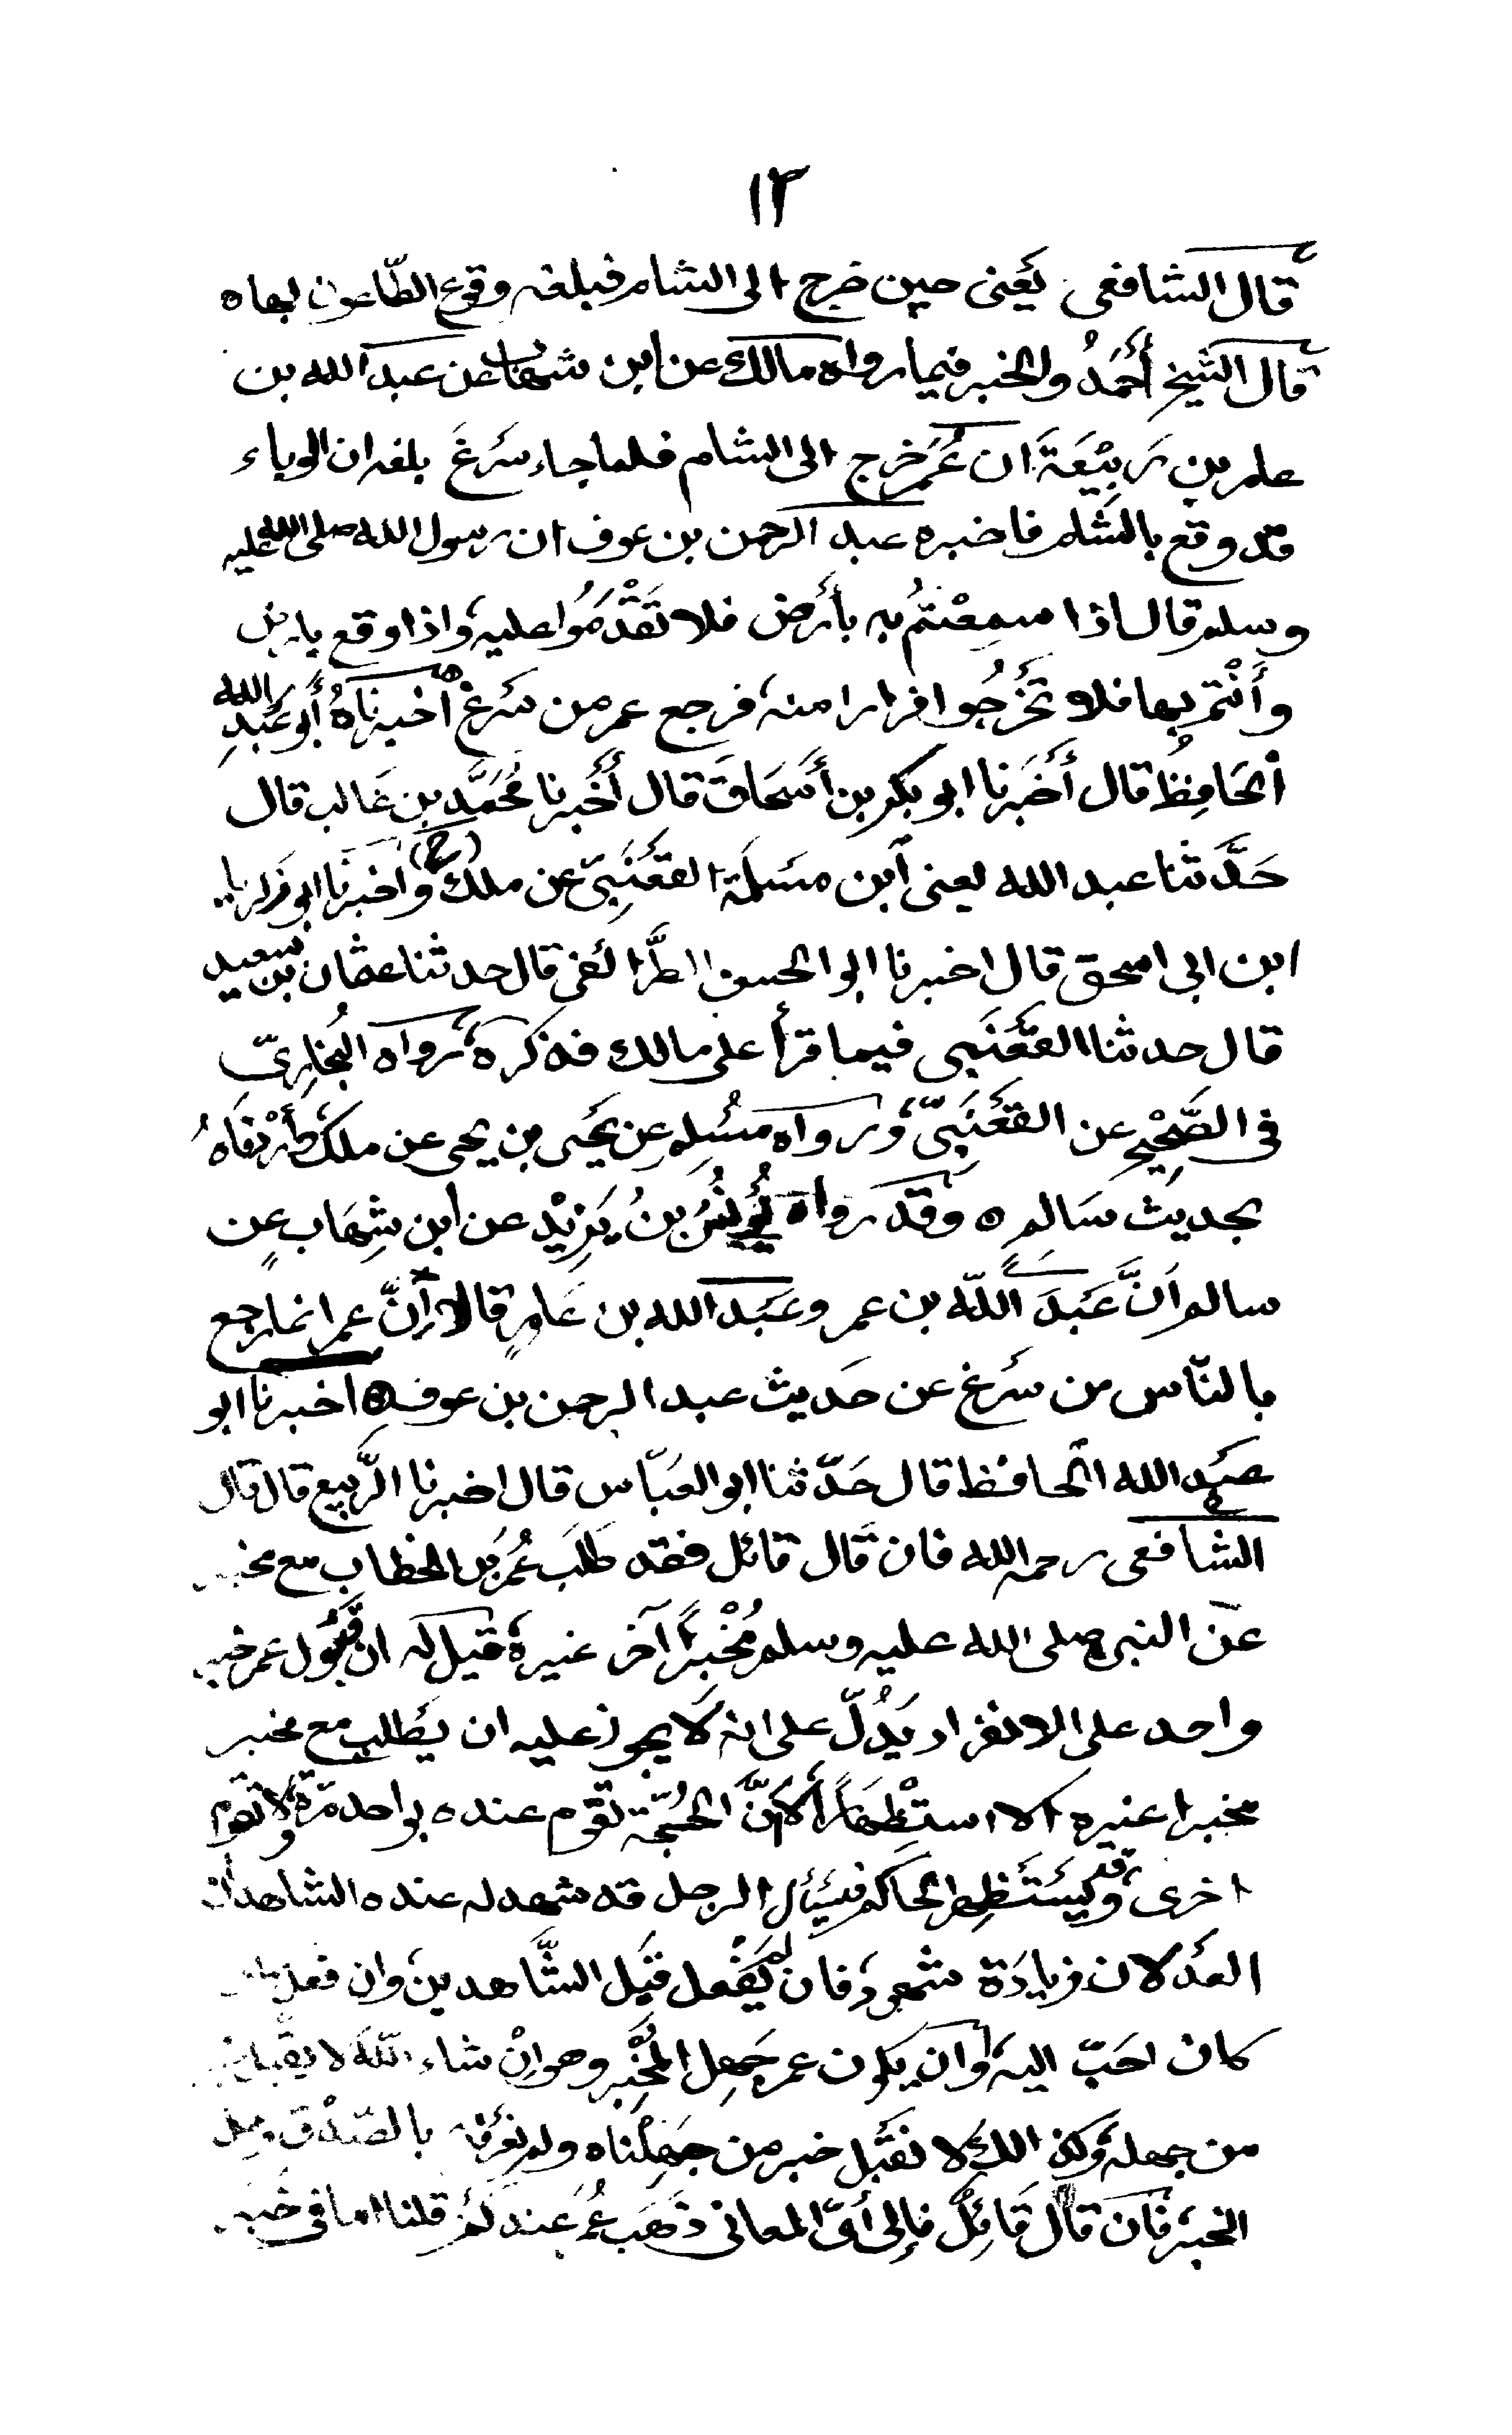 ١٣
قال الشافعي يَعْنى حين خرج الى الشام فبلغه وقوع الطّاعون بها ه
قال الشيخ أَحْمَدُ والخبر فيما رواه مالك عن ابن شهاب عن عبد الله بن
عامر بن رَبِيْعَةَ ان عُمَر خرج الى الشام فلما جاء سَرْغَ بلغه ان الوباء
قد وقع بالشام فاخبره عبد الرحمن بن عوف ان رسول الله صلى الله عليه
وسلم قال اذا سمِعْتمُ به بأَرض فلا تَقْدَمُوا عليه، واذا وقع بارض
وأَنْتم بها فلا تَخْرُجُوا فرارا منه، فرجع عمر من سَرْغ ه أخبرناهُ أَبو عَبْدِ الله
الحَافِظُ قال أَخْبَرنا ابو بكر بن أسحَاقَ قال أَخْبرنا مُحَمَّد بن غَالب قال
حَدَّثنا عبد الله يعنى ابن مَسْلَمَة القَعْنَبِيّ عن ملك (ح) وأخبرنا ابو زكريا
ابن ابي اسحق قال اخبرنا ابو الحسن الطَّرائفي قال حدثنا عثمان بن سعيد
قال حدثنا القَعْنَبي فيما قرأ على مالك فذكره، رواه البُخارِيّ
في الصَّحِيْحِ عن القَعْنَبِيّ، وَرواه مُسْلم عن يَحْيَى بن يحيى عن ملك، وأَرْدَفَاهُ
بحديث سَالم ه وقد رواه يُوْنُسُ بنُ يَزِيْد عن ابن شِهَاب عن
سالم اَنَّ عَبْدَ اللّه بن عمر وعَبْد الله بن عَامرٍ قالا إنَّ عمر انما رجع
بالنّاس من سَرْغ عن حَديث عبد الرحمن بن عوف ه اخبرنا ابو
عبد الله الحافظ قال حَدّثنا ابو العَبّاس قال اخبرنا الرَّبيع قال قال
الشافعى رحمه الله فان قال قائل فقد طَلَبَ عُمَرُ بن الخطاب مع مخبر
عَن النبي صلى الله عليه وسلم مُخْبرًا آخر غيره، قيل له ان قَبُول عمر خبر
واحد على الانفراد يَدُلّ على انه لَا يجوز عليه ان يَطلب مع مخبر
مخبرا غيره الا استِظْهَارًا، لأَنَّ الحُجّة تقوم عنده بواحد مَرّة، ولا تقوم
اخرى، وقد يَسْتَظهر الحاكم فيَسْأل الرجل قد شهد له عنده الشاهدان
العَدْلان زيادَة شهود، فان لم يَفْعل قَبِل الشَّاهدين، وان فعل
كان احَبّ اليه، أو ان يكون عمر جَهِل المُخْبر وهو إنْ شاء الله لا يقبل خبر
من جهله، وكذلك لا نقْبَل خبر من جَهِلْناه ولم نعْرفه بالصّدْق وعمل
الخبر، فان قال قَائِلٌ فإلى أيّ المعانى ذَهَب عُمَر عندَكُمْ قلنا اما في خَبر